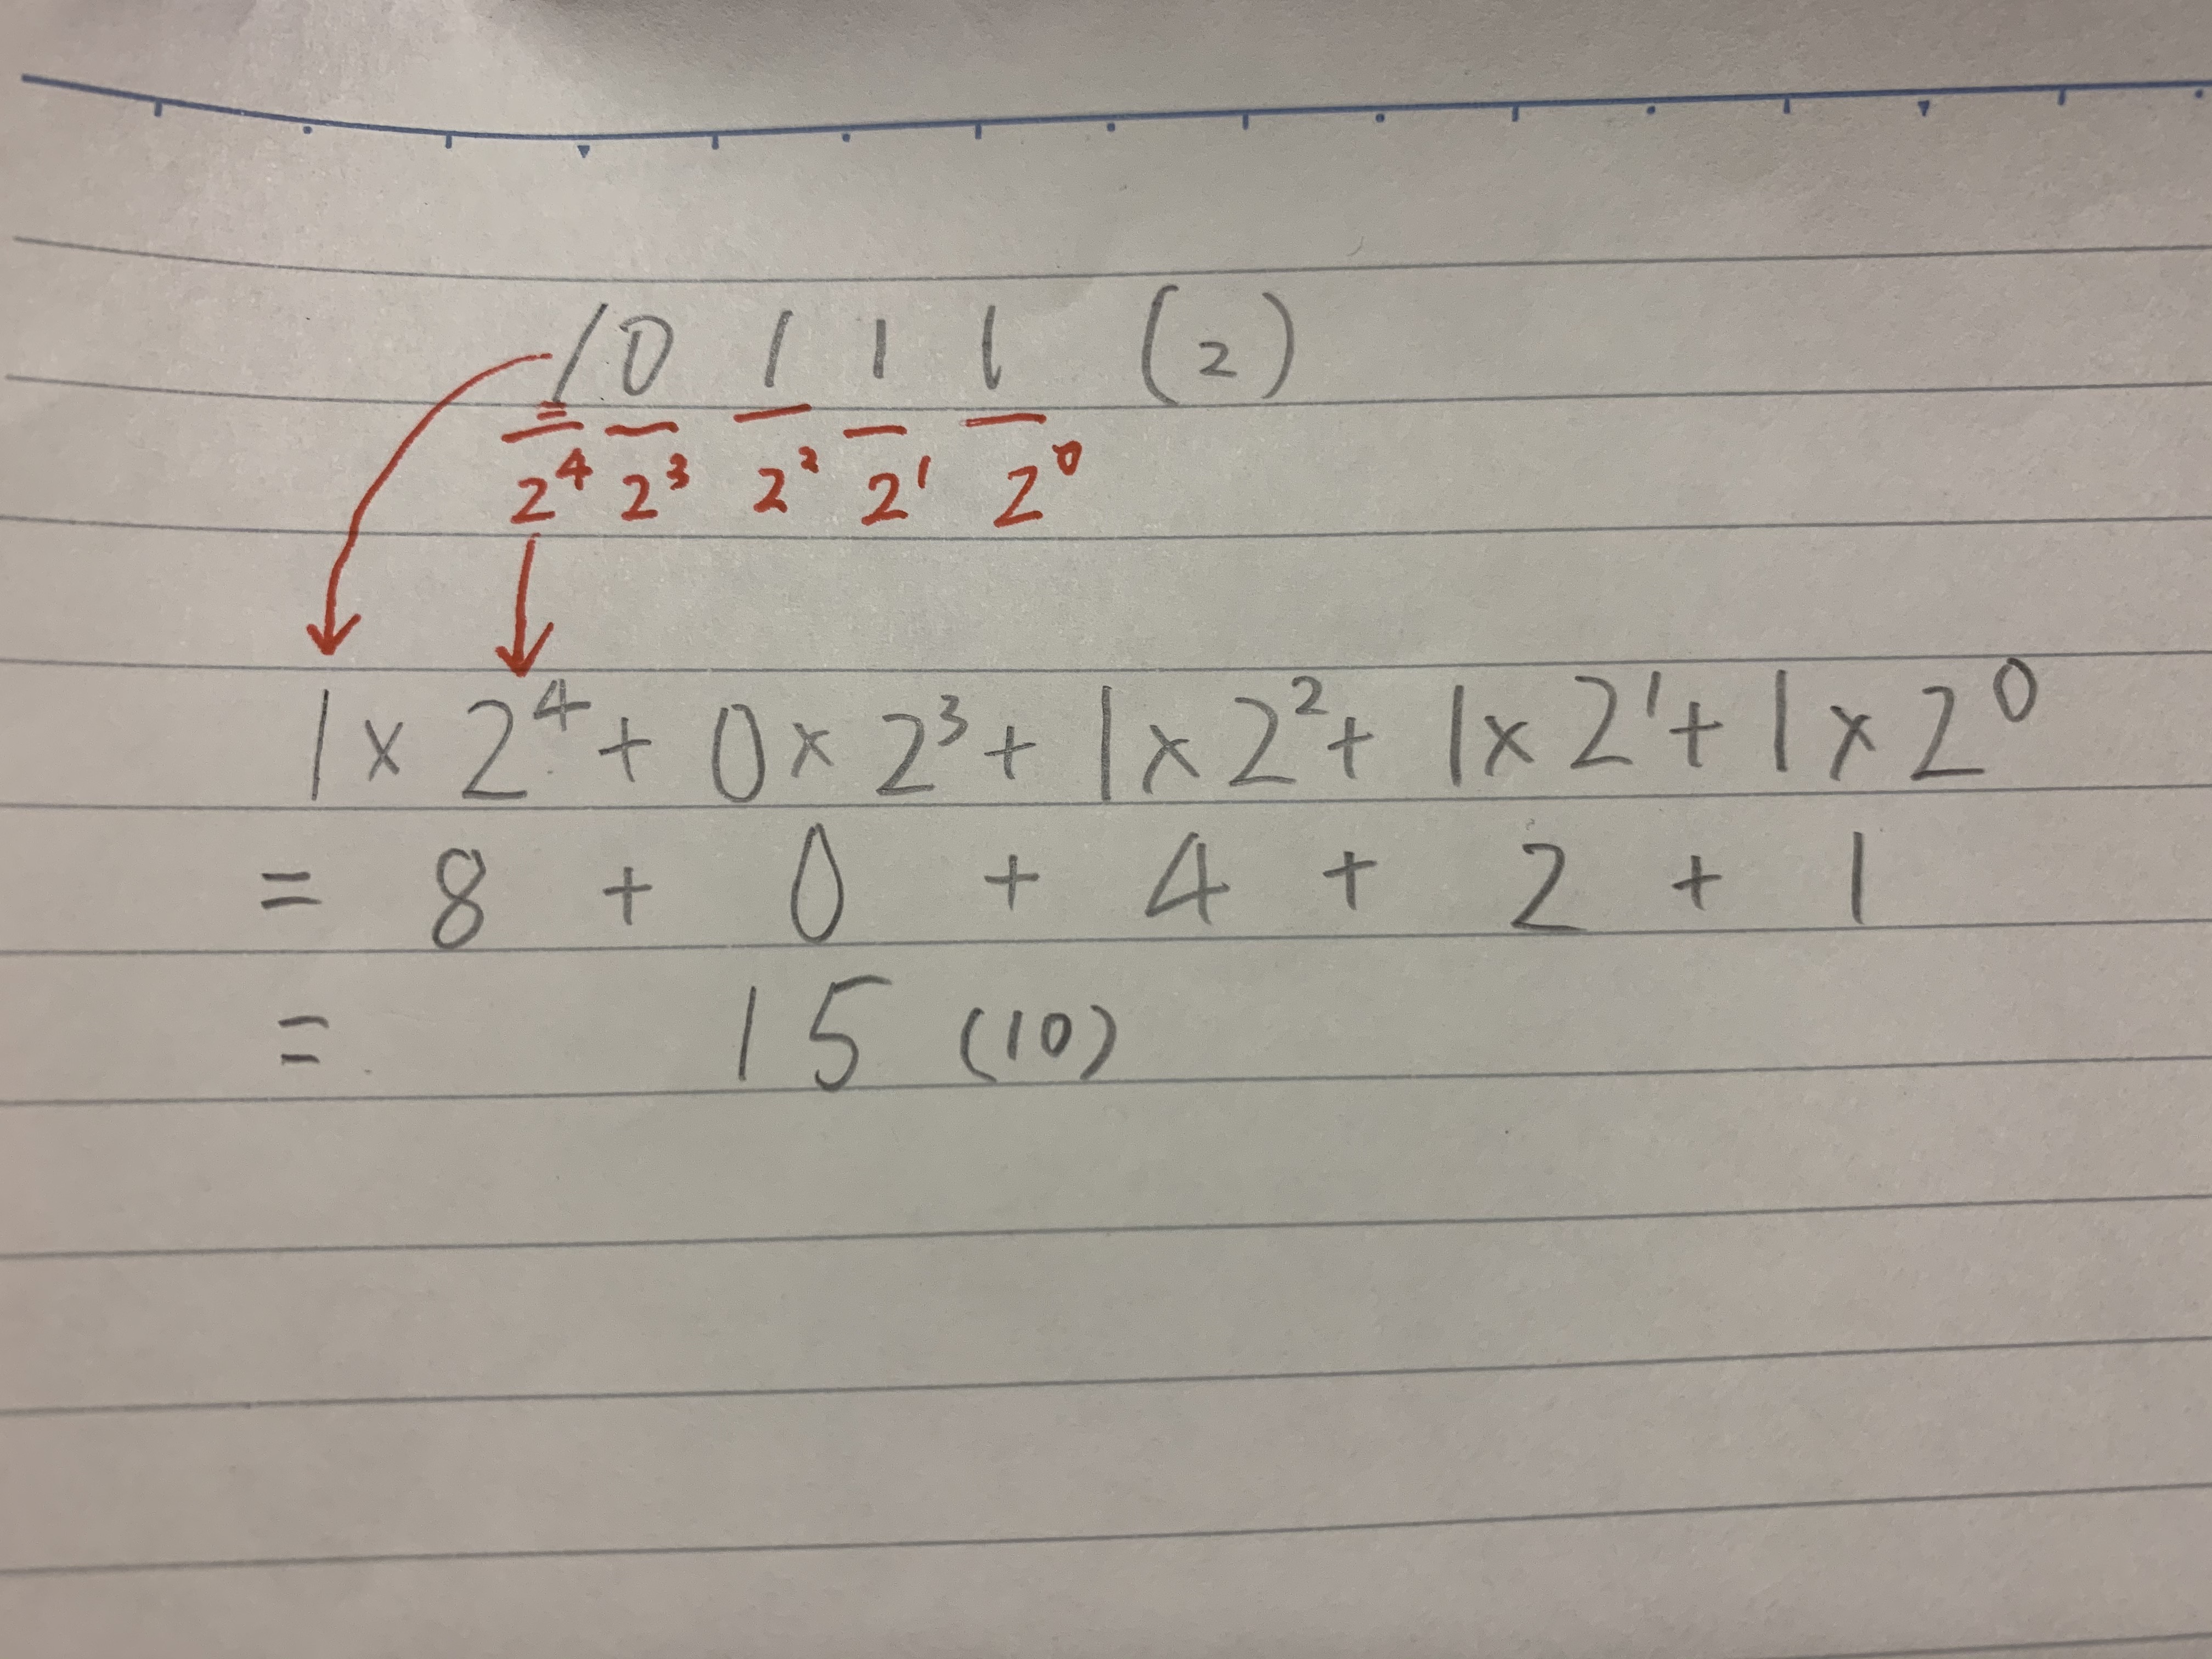 10111 (2)
2⁴ 2³ 2² 2¹ 2⁰
1 × 2⁴ + 0 × 2³ + 1 × 2² + 1 × 2¹ + 1 × 2⁰
= 8 + 0 + 4 + 2 + 1
= 15 (10)